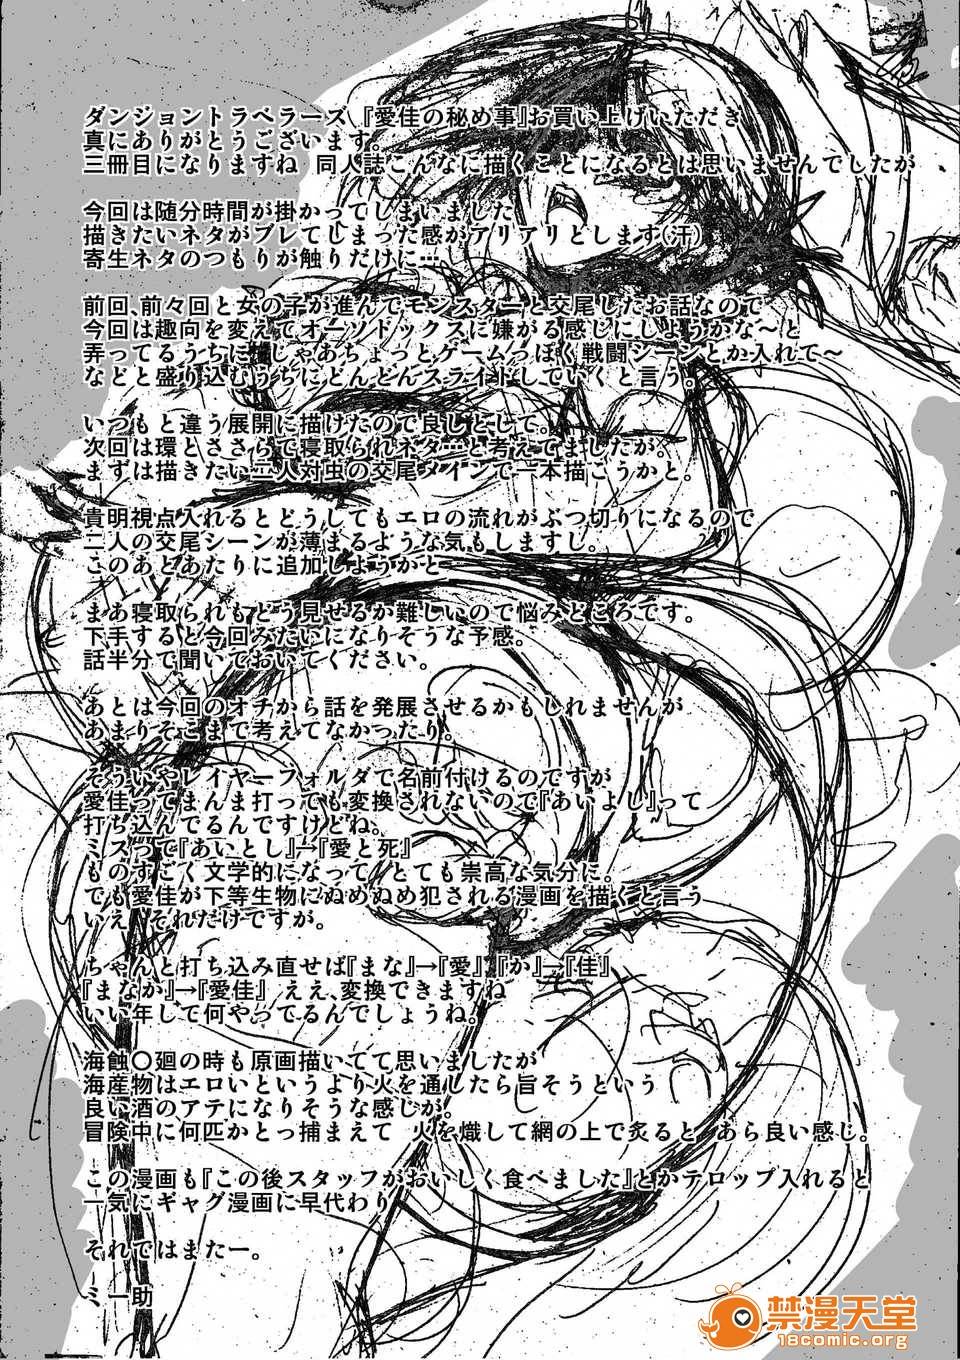 ダンジョントラベラーズ『愛佳の秘め事』お買い上げいただき
真にありがとうございます。
三冊目になりますね 同人誌こんなに描くことになるとは思いませんでしたが
今回は随分時間が掛かってしまいました
描きたいネタがブレてしまった感がアリアリとします(汗)
寄生ネタのつもりが触りだけに…
前回、前々回と女の子が進んでモンスターと交尾したお話なので
今回は趣向を変えてオーソドックスに嫌がる感じにしようかな～と
弄ってるうちに じゃあちょっとゲームっぽく戦闘シーンとか入れて～
などと盛り込むうちにどんどんスライドしていくと言う。
いつもと違う展開に描けたので良しとして。
次回は環とささらで寝取られネタ…と考えてましたが。
まずは描きたい二人対虫の交尾メインで一本描こうかと。
貴明視点入れるとどうしてもエロの流れがぶつ切りになるので
二人の交尾シーンが薄まるような気もしますし。
このあとあたりに追加しようかと…
まあ寝取られもどう見せるか難しいので悩みどころです。
下手すると今回みたいになりそうな予感。
話半分で聞いておいてください。
あとは今回のオチから話を発展させるかもしれませんが
あまりそこまで考えてなかったり。
そういやレイヤーフォルダで名前付けるのですが
愛佳ってまんま打っても変換されないので『あいよし』って
打ち込んでるんですけどね。
ミスって『あいとし』→『愛と死』
ものすごく文学的になって とても崇高な気分に。
でも愛佳が下等生物にぬめぬめ犯される漫画を描くと言う
いえ それだけですが。
ちゃんと打ち込み直せば『まな』→『愛』『か』→『佳』
『まなか』→『愛佳』 ええ、変換できますね
いい年して何やってるんでしょうね。
海蝕〇廻の時も原画描いてて思いましたが
海産物はエロいというより火を通したら旨そうという
良い酒のアテになりそうな感じが。
冒険中に何匹かとっ捕まえて 火を熾して網の上で炙ると あら良い感じ。
この漫画も『この後スタッフがおいしく食べました』とかテロップ入れると
一気にギャグ漫画に早代わり
それではまたー。
ミ一助
禁漫天堂
18comic.org